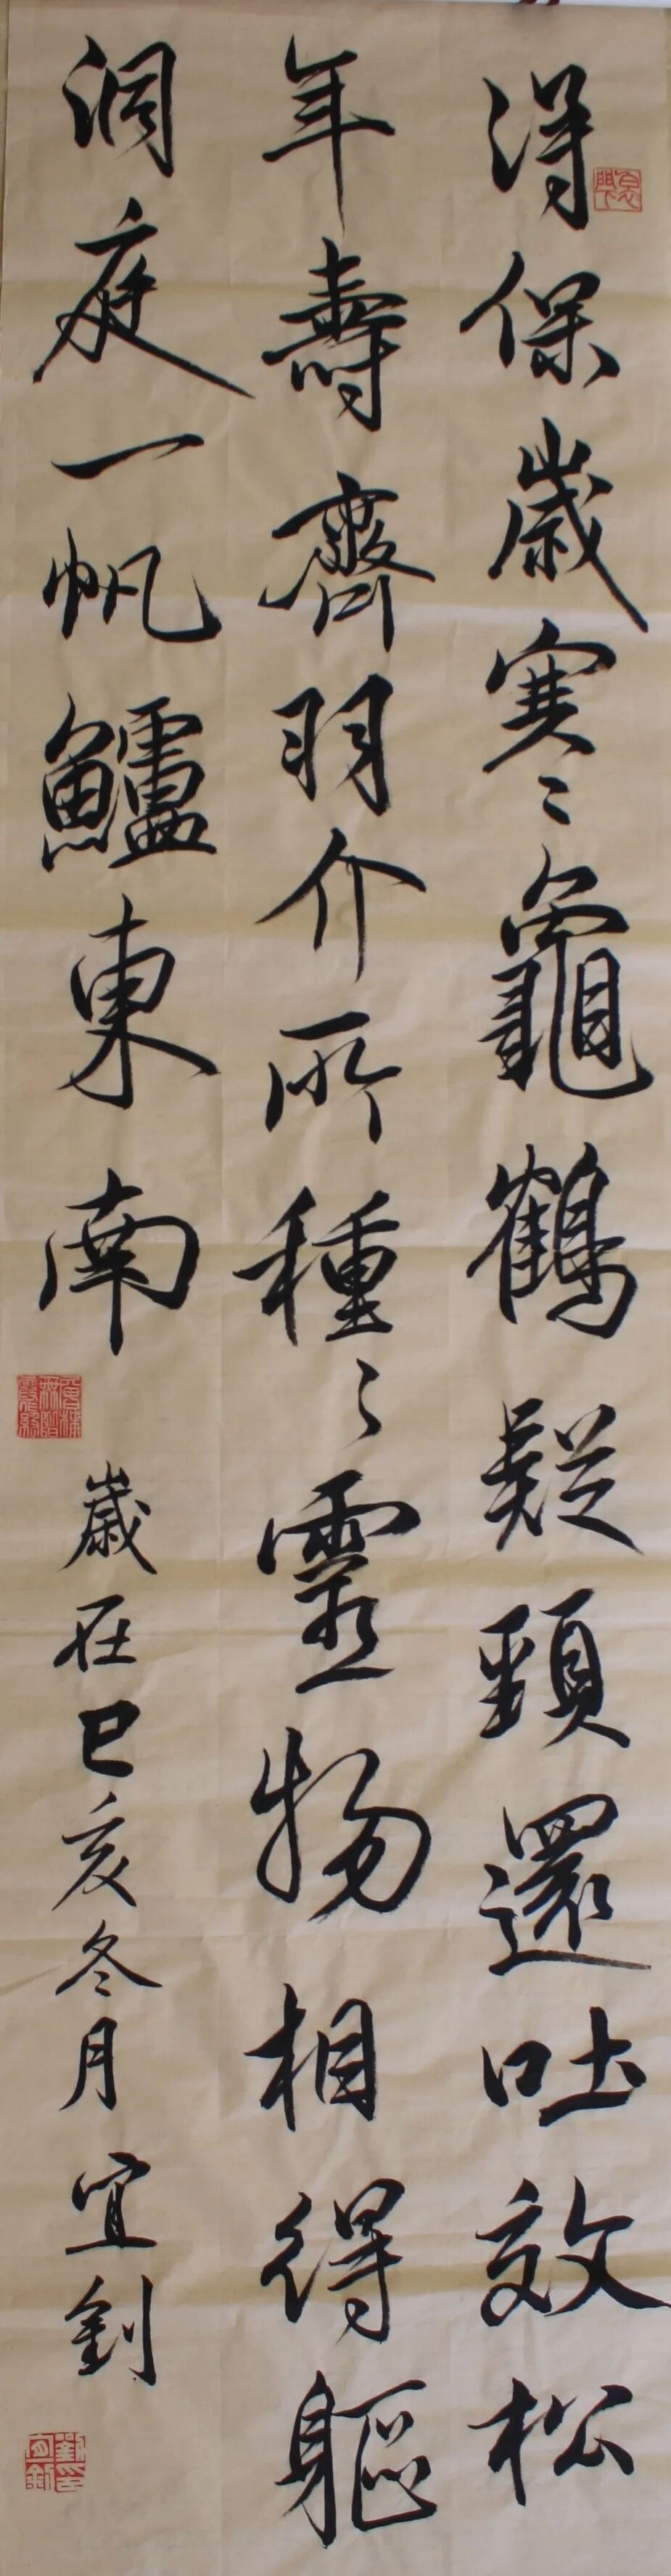 得保歲寒〻龜鶴疑頸還吐效松
年壽齊羽介所種〻靈物相得軀
洞庭一帆鱸東南
歲在己亥冬月宜釗